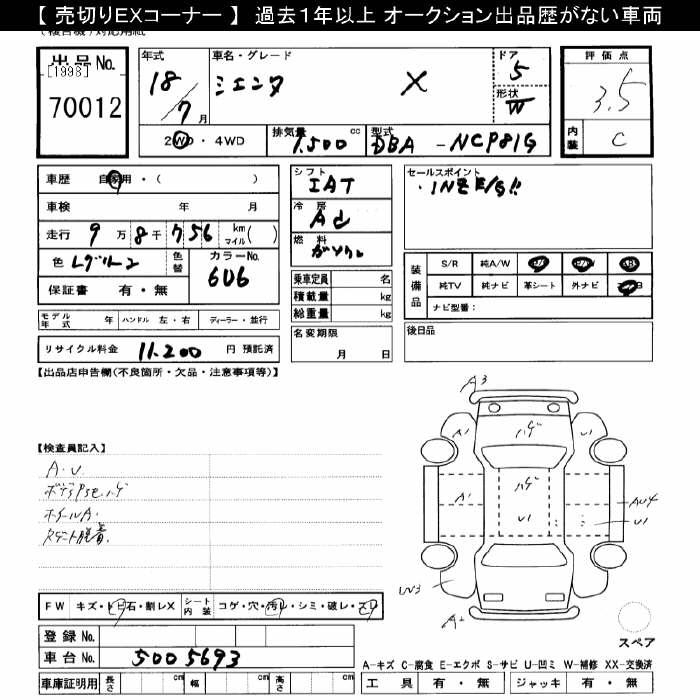 【 売切りEXコーナー 】 過去1年以上 オークション出品歴がない車両
出品No.
[1998]
70012
年式
18/7月
車名・グレード
シエンタ X
ドア
5
形状
W
評価点
3.5
内装
C
2WD・4WD
排気量
1,500 cc
型式
DBA - NCP81G
車歴 自家用・( )
車検 年 月
走行 9万8千756 km マイル( )
色
色替
カラーNo.
6U6
保証書 有・無
シフト
IAT
冷房
燃料
乗車定員 名
積載量 kg
総重量 kg
セールスポイント
・1NZ E/G!!
装備品
S/R 純A/W
純TV 純ナビ 革シート 外ナビ
ナビ型番:
モデル年式 年 ハンドル 左・右 ディーラー・並行
名変期限
月 日
後日品
リサイクル料金 11,200 円 預託済
【出品店申告欄(不良箇所・欠品・注意事項等)】
【検査員記入】
A.U
ホイールA.
A3
A1 ハゲ U1
ハゲ
A1 U1
AU4
U1
W3
FW キズ・トビ石・割レX シート内装 コゲ・穴・汚レ・シミ・破レ・スレ
登録No.
車台No. 5005693
スペア
A-キズ C-腐食 E-エクボ S-サビ U-凹ミ W-補修 XX-交換済
車庫証明用 長さ cm 幅 cm 高さ cm
工具 有・無 ジャッキ 有・無